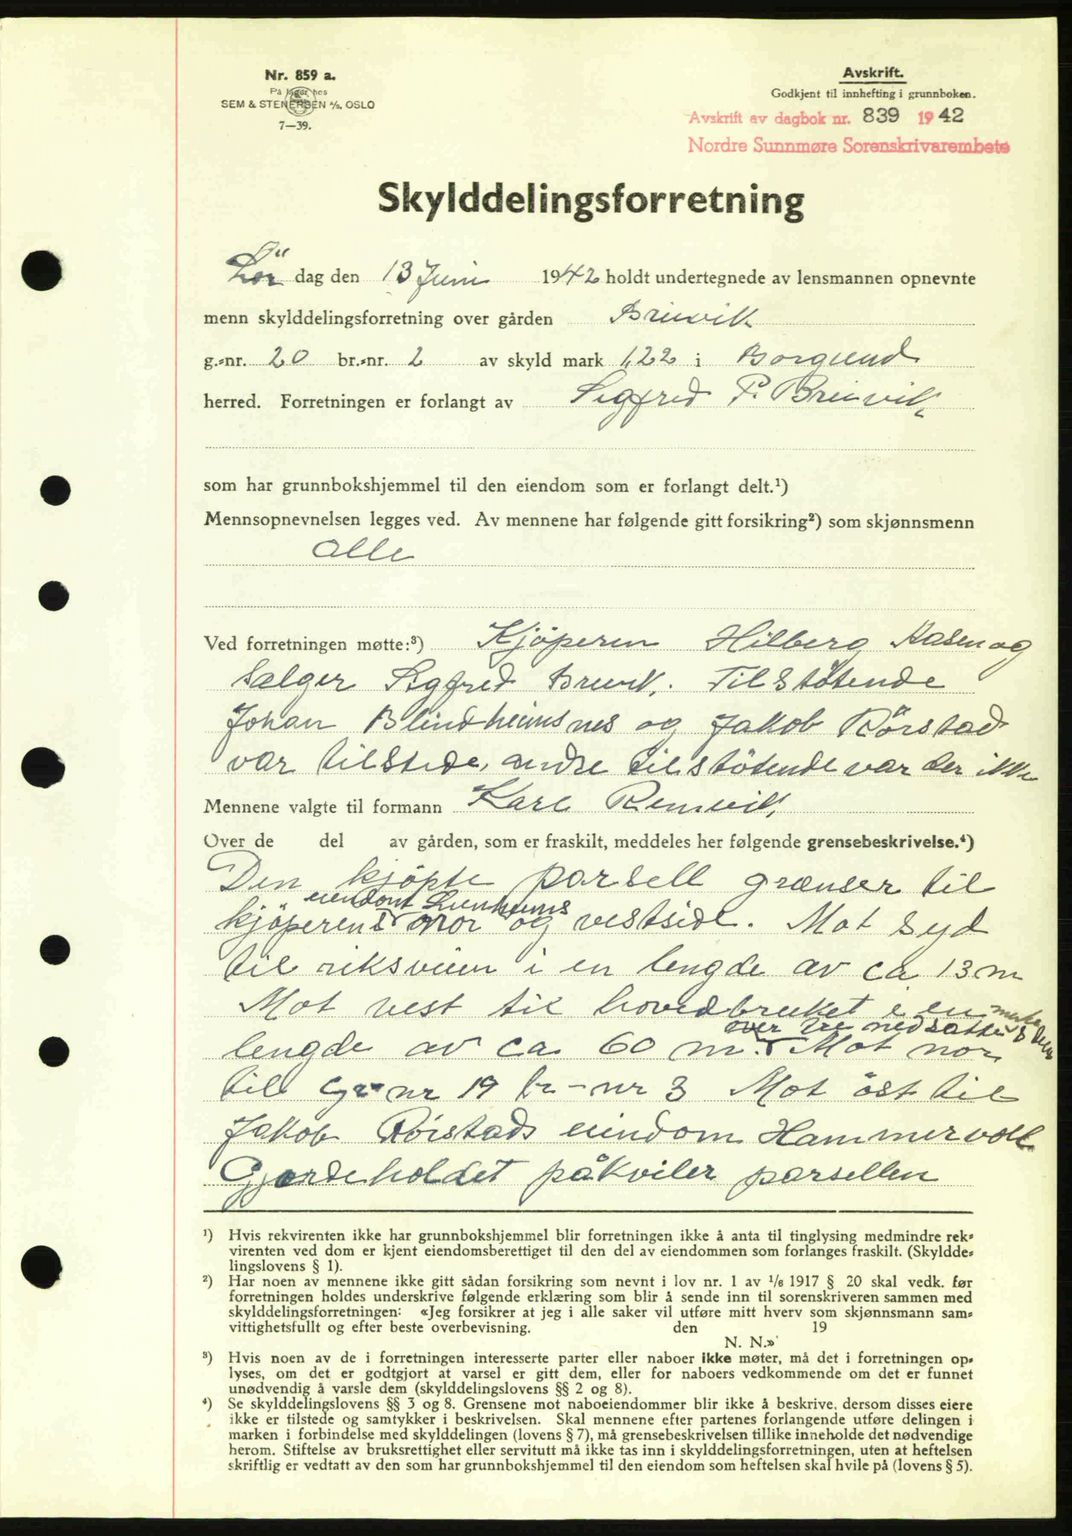 Nr. 859 a.
På lager hos
SEM & STENERSEN A/S. OSLO
7—39.
Avskrift.
Godkjent til innhefting i grunnboken.
Avskrift av dagbok nr. 839 1942
Nordre Sunnmøre Sorenskrivarembete
Skylddelingsforretning
Lör dag den 13 Juni 1942 holdt undertegnede av lensmannen opnevnte
menn skylddelingsforretning over gården Breivik
g.-nr. 20 br.-nr. 2 av skyld mark 1,22 i Borgund
herred. Forretningen er forlangt av Sigfred P. Breivik,
som har grunnbokshjemmel til den eiendom som er forlangt delt.¹)
Mennsopnevnelsen legges ved. Av mennene har følgende gitt forsikring²) som skjønnsmenn
alle
Ved forretningen møtte:³) Kjöperen Hilberg Aasen og
Selger Sigfred Breivik. Tilstötende
Johan Blindheimsnes og Jakob Rörstad
var tilstede, andre tilstötende var der ikke
Mennene valgte til formann Karl Remvik,
Over de del av gården, som er fraskilt, meddeles her følgende grensebeskrivelse.⁴)
Den kjöpte parsell grænser til
eiendom
kjöperens nor og vestside. Mot syd
til riksveien i en lengde av ca 13 m
Mot vest til hovedbruket i en
over tre nedsatte
lengde av ca 60 m. Mot nor
til gr nr 19 br-nr 3 Mot öst til
Jakob Rörstads eiendom Hammervoll
Gjerdeholdet påkviler parsellen
¹) Hvis rekvirenten ikke har grunnbokshjemmel blir forretningen ikke å anta til tinglysing medmindre rek-
virenten ved dom er kjent eiendomsberettiget til den del av eiendommen som forlanges fraskilt. (Skyldde-
lingslovens § 1).
²) Har noen av mennene ikke gitt sådan forsikring som nevnt i lov nr. 1 av 1/6 1917 § 20 skal vedk. før
forretningen holdes underskrive følgende erklæring som blir å sende inn til sorenskriveren sammen med
skylddelingsforretningen: «Jeg forsikrer at jeg i alle saker vil utføre mitt hverv som skjønnsmann sam-
vittighetsfullt og efter beste overbevisning. den 19
N. N.»
³) Hvis noen av de i forretningen interesserte parter eller naboer ikke møter, må det i forretningen op-
lyses, om det er godtgjort at varsel er gitt dem, eller for naboers vedkommende om det er funnet
unødvendig å varsle dem (skylddelingslovens §§ 2 og 8).
⁴) Se skylddelingslovens §§ 3 og 8. Grensene mot naboeiendommer blir ikke å beskrive, dersom disses eiere
ikke er tilstede og samtykker i beskrivelsen. Skal mennene efter partenes forlangende utføre delingen i
marken i forbindelse med skylddelingen (lovens § 7), må grensebeskrivelsen tillike inneholde det nødvendige
herom. Stiftelse av bruksrettighet eller servitutt må ikke tas inn i skylddelingsforretningen, uten at heftelsen
skriftlig er vedtatt av den som har grunnbokshjemmel til den eiendom som heftelsen skal hvile på (lovens § 5).